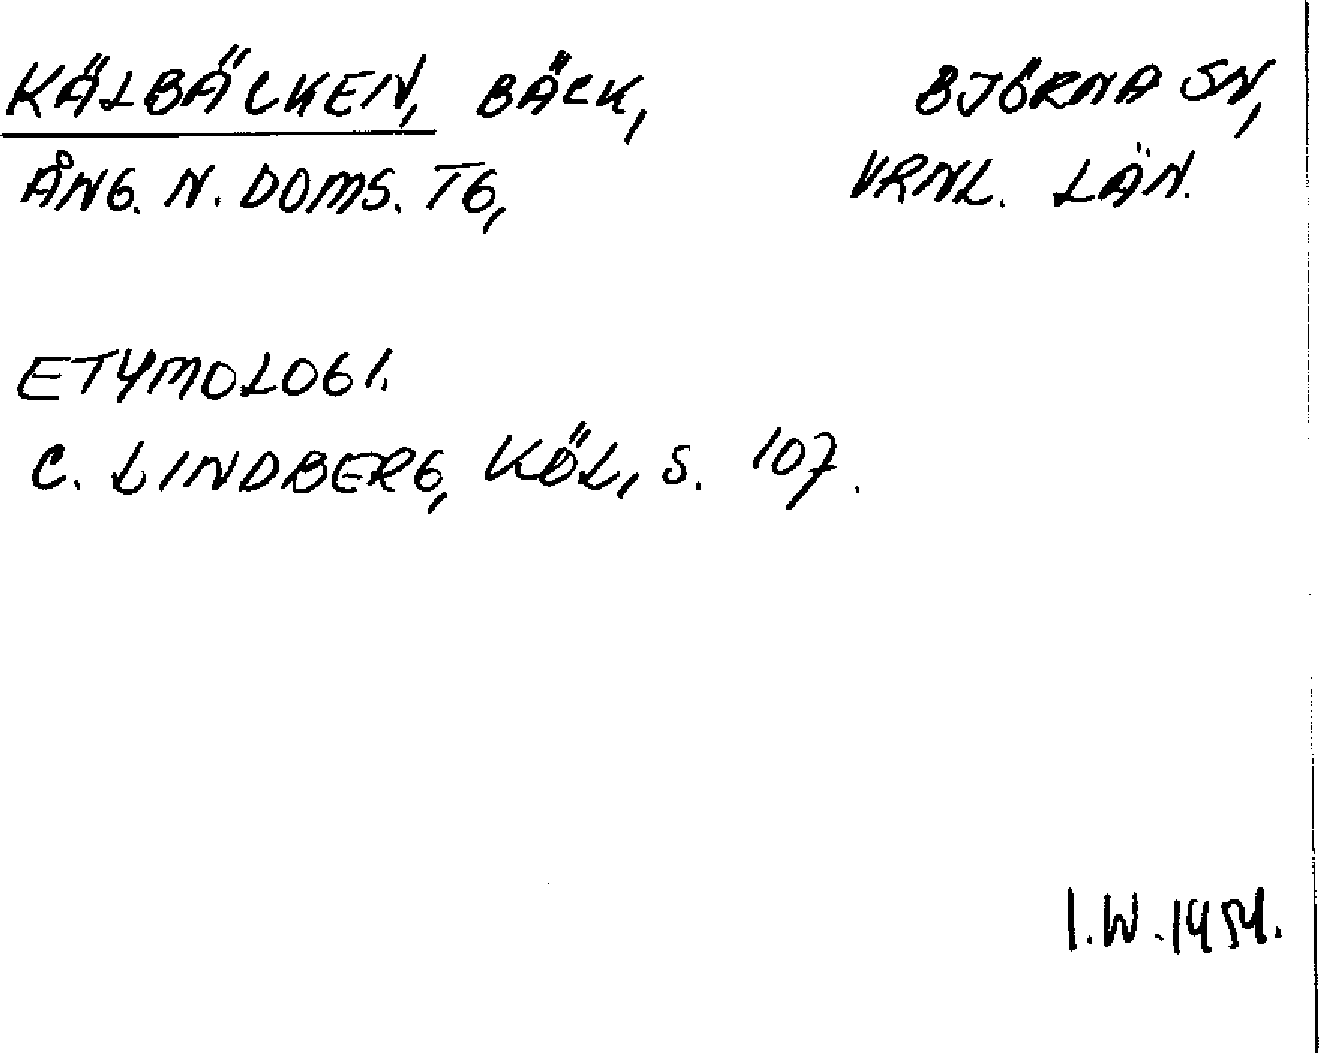 KÄLBÄCKEN, BÄCK, BJÖRNA SN,
ÅNG. N. DOMS. TG, VRNL. LÄN.
ETYMOLOGI.
C. LINDBERG, KÖL, S. 107.
I.W.1954.